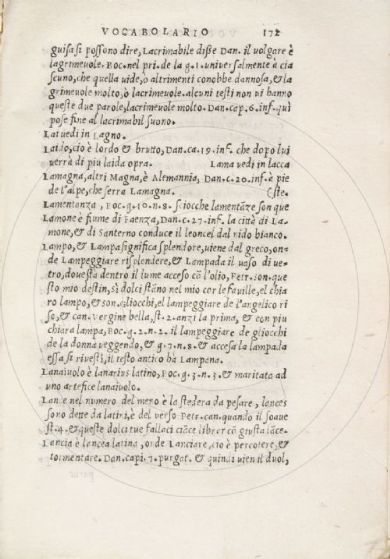 VOCABOLARIO 172
guisa si possono dire, Lacrimabile disse Dan. il uolgare è
lagrimeuole. Boc. nel pri. de la g. 1. uniuersalmente a cia
scuno, che quella uide, o altrimenti conobbe dannosa, & la
grimeuole molto, è lacrimeuole. alcuni testi non ui hanno
queste due parole, lacrimeuole molto. Dan. cap. 6. inf. quì
pose fine al lacrimabil suono.
Lai uedi in Lagno.
Laido, cio è lordo & brutto, Dan. ca. 19. inf. che dopo lui
uerrà di piu laida opra. Lama uedi in lacca
Lamagna, altri Magna, è Alemannia, Dan. c. 20. inf. è pie
de l'alpe, che serra Lamagna. (ste.
Lamentanza, Boc. g. 10. n. 8. sciocche lamentāze son que
Lamone è fiume di Faenza, Dan. c. 27. inf. la città di La-
mone, & di Santerno conduce il leoncel dal nido bianco.
Lampo, & Lampa significa splendore, uiene dal greco, on-
de Lampeggiare risplendere, & Lampada il uaso di ue-
tro, doue sta dentro il lume acceso cō l'olio, Petr. son. que
sto mio destin, sì dolci stāno nel mio cor le fauille, el chia
ro lampo, & son. gliocchi, el lampeggiare de l'angelico ri
so, & can. vergine bella, st. 2. anzi la prima, & con piu
chiara lampa, Boc. g. 2. n. 2. il lampeggiare de gliocchi
de la donna veggendo, & g. 7. n. 8. & accesa la lampada
essa si riuestì, il testo antico ha Lampana.
Lanaiuolo è lanarius latino, Boc. g. 3. n. 3. & maritata ad
uno artefice lanaiuolo.
Lance nel numero del meno è la stedera da pesare, lances
sono dette da latini, è del verso Petr. can. quando il soaue
st. 4. & queste dolci tue fallaci ciāce librar cō giusta lāce.
Lancia è lancea latina, onde Lanciare, cio è percotere, &
tormentare. Dan. capi. 7. purgat. & quindi uien il duol,